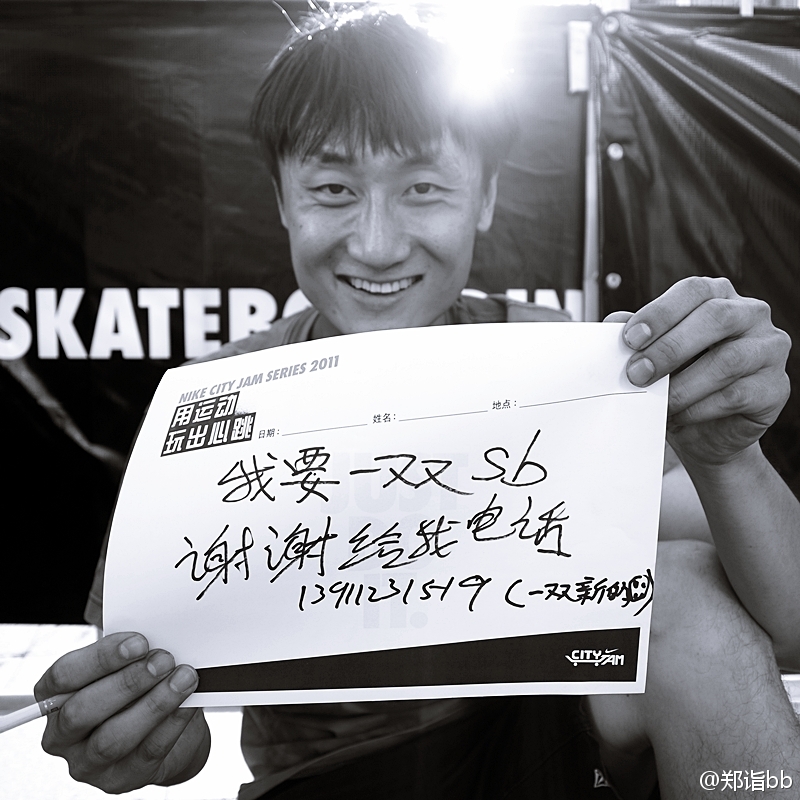 SKATEBO
NIKE CITY JAM SERIES 2011
用运动
玩出心跳
日期: 姓名: 地点:
我要一双双 sb
谢谢给我电话
13911231519 (一双新的
CITY JAM
@郑诣bb